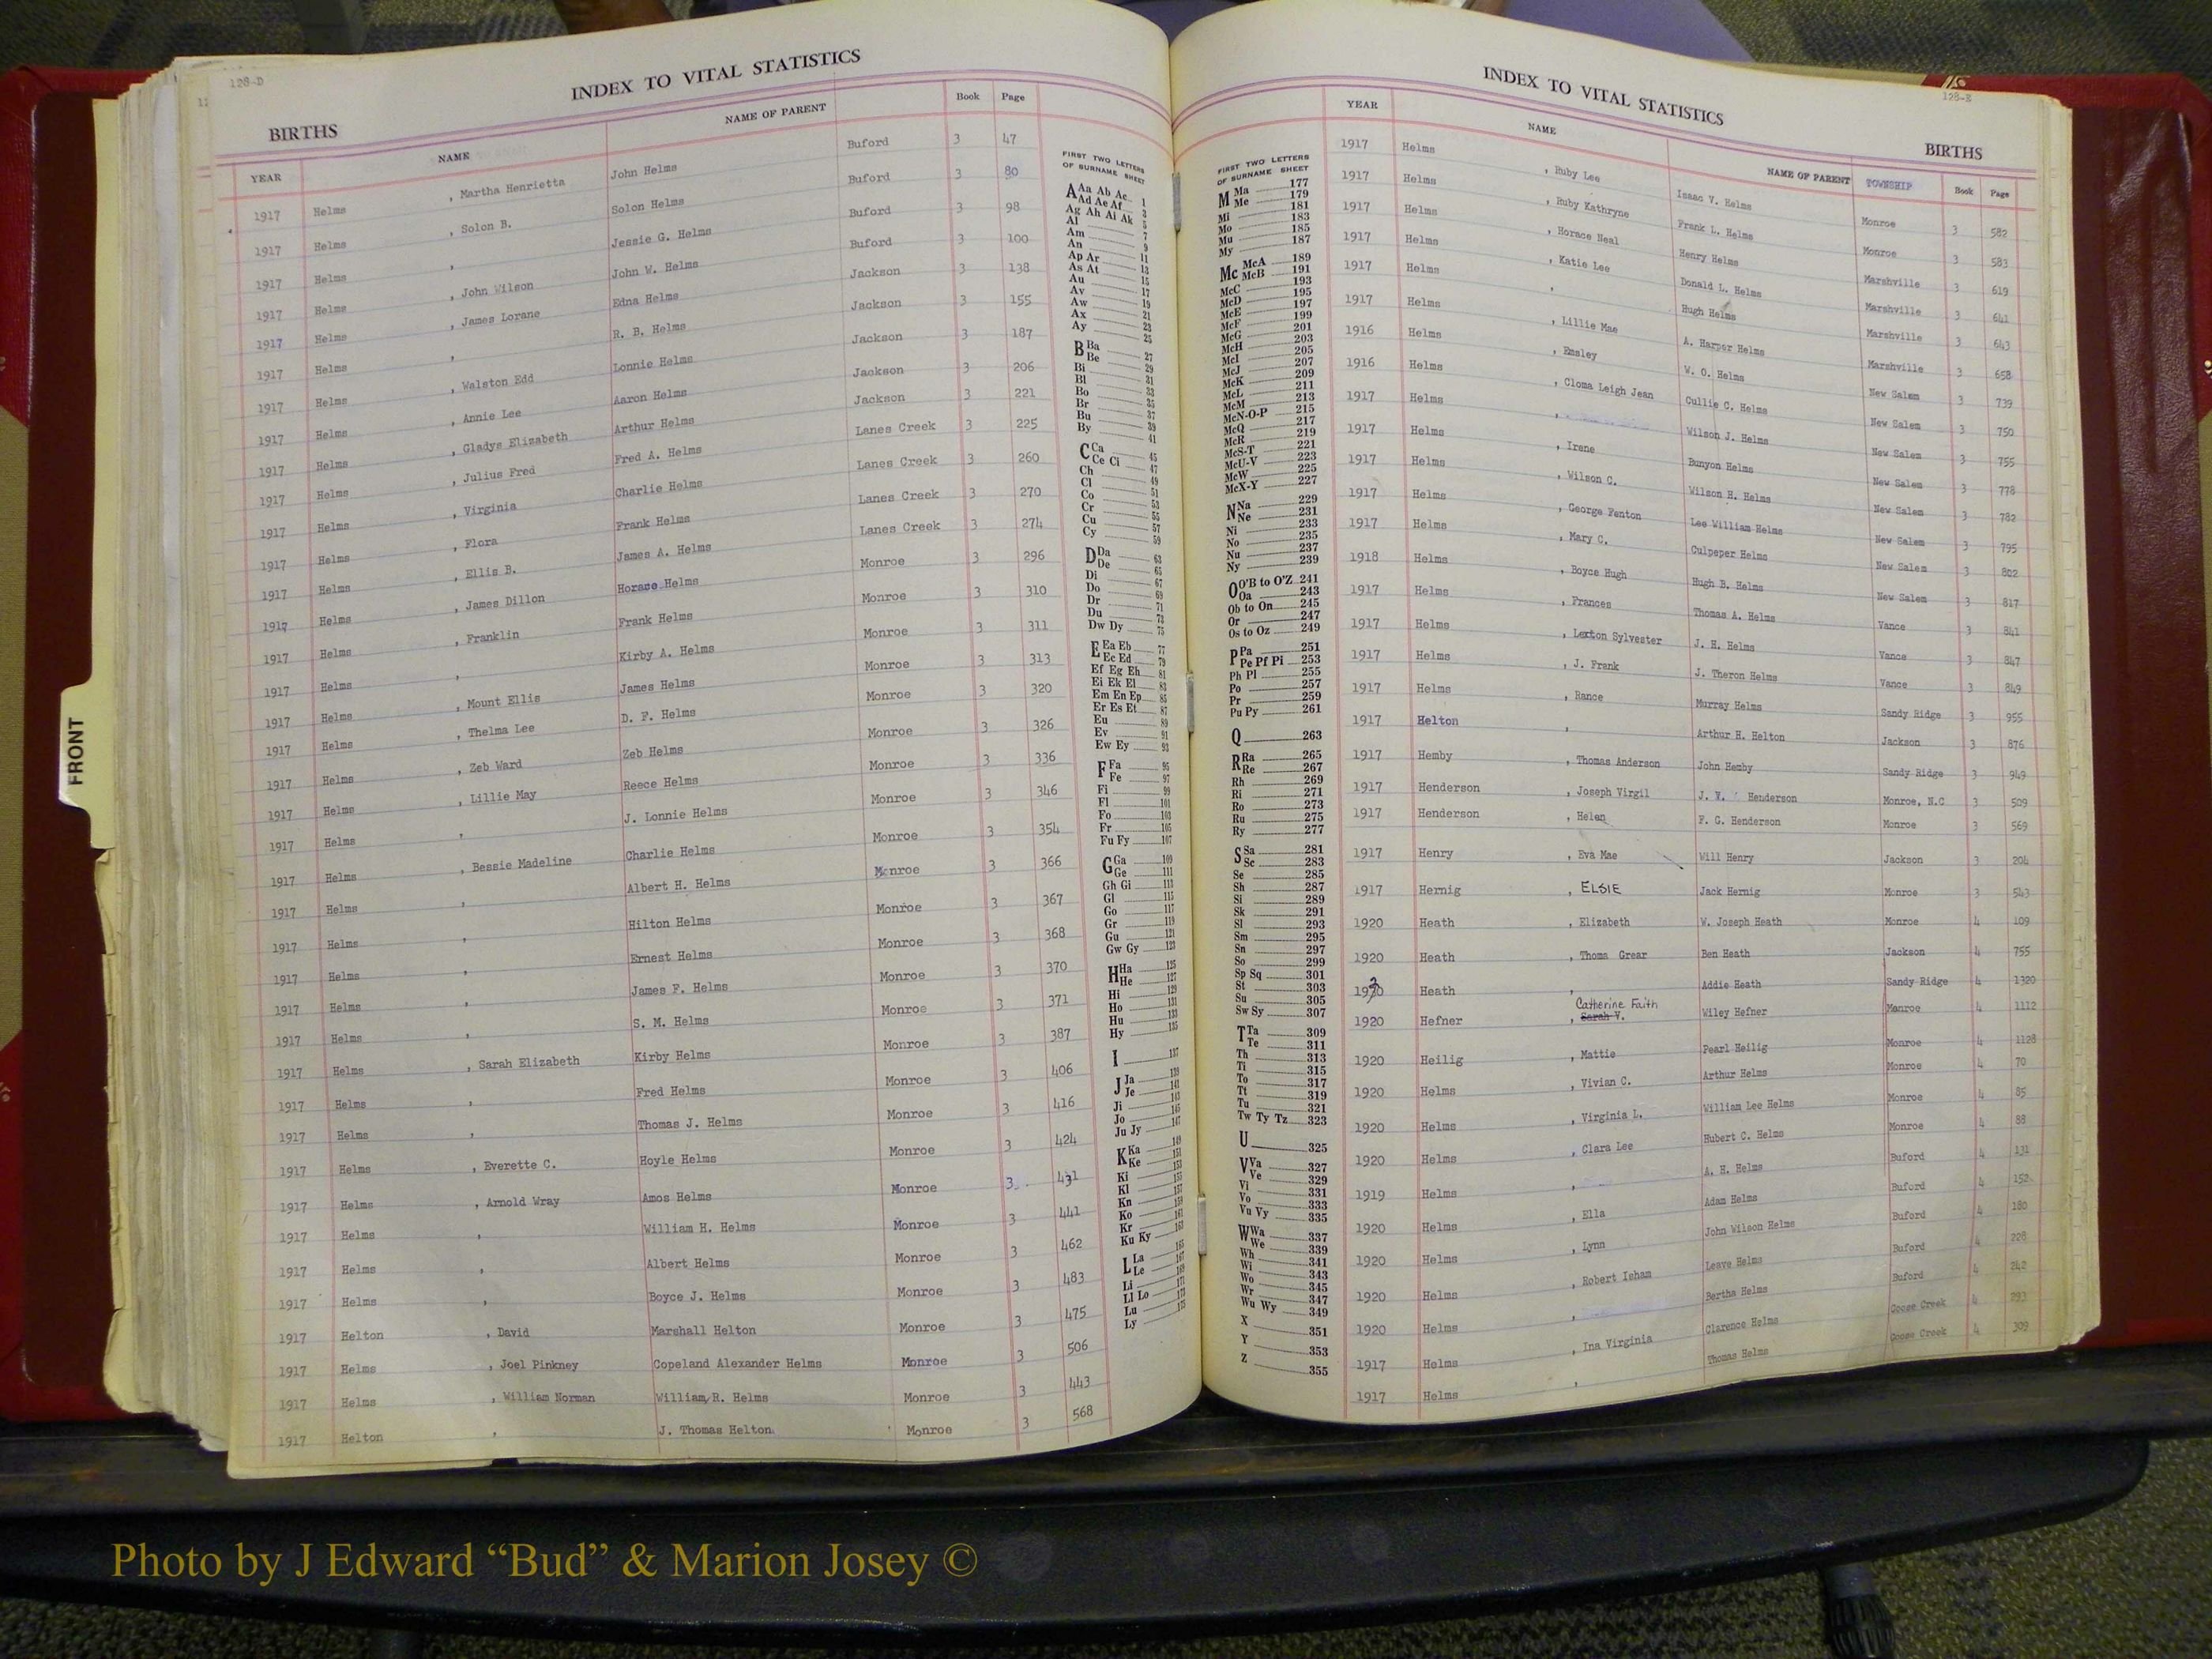 128-D
INDEX TO VITAL STATISTICS
BIRTHS
YEAR NAME NAME OF PARENT Book Page
1917 Helms , Martha Henrietta John Helms Buford 3 47
1917 Helms , Solon B. Solon Helms Buford 3 80
1917 Helms , Jessie G. Helms Buford 3 98
1917 Helms , John Wilson John W. Helms Buford 3 100
1917 Helms , James Lorane Edna Helms Jackson 3 138
1917 Helms , R. B. Helms Jackson 3 155
1917 Helms , Walston Edd Lonnie Helms Jackson 3 187
1917 Helms , Annie Lee Aaron Helms Jackson 3 206
1917 Helms , Gladys Elizabeth Arthur Helms Jackson 3 221
1917 Helms , Julius Fred Fred A. Helms Lanes Creek 3 225
1917 Helms , Virginia Charlie Helms Lanes Creek 3 260
1917 Helms , Flora Frank Helms Lanes Creek 3 270
1917 Helms , Ellis B. James A. Helms Lanes Creek 3 274
1917 Helms , James Dillon Horace Helms Monroe 3 296
1917 Helms , Franklin Frank Helms Monroe 3 310
1917 Helms , Kirby A. Helms Monroe 3 311
1917 Helms , Mount Ellis James Helms Monroe 3 313
1917 Helms , Thelma Lee D. F. Helms Monroe 3 320
1917 Helms , Zeb Ward Zeb Helms Monroe 3 326
1917 Helms , Lillie May Reece Helms Monroe 3 336
1917 Helms , J. Lonnie Helms Monroe 3 346
1917 Helms , Bessie Madeline Charlie Helms Monroe 3 354
1917 Helms , Albert H. Helms Monroe 3 366
1917 Helms , Hilton Helms Monroe 3 367
1917 Helms , Ernest Helms Monroe 3 368
1917 Helms , James F. Helms Monroe 3 370
1917 Helms , S. M. Helms Monroe 3 371
1917 Helms , Sarah Elizabeth Kirby Helms Monroe 3 387
1917 Helms , Fred Helms Monroe 3 406
1917 Helms , Thomas J. Helms Monroe 3 416
1917 Helms , Everette C. Hoyle Helms Monroe 3 424
1917 Helms , Arnold Wray Amos Helms Monroe 3 431
1917 Helms , William H. Helms Monroe 3 441
1917 Helms , Albert Helms Monroe 3 462
1917 Helms , Boyce J. Helms Monroe 3 483
1917 Helton , David Marshall Helton Monroe 3 475
1917 Helms , Joel Pinkney Copeland Alexander Helms Monroe 3 506
1917 Helms , William Norman William R. Helms Monroe 3 443
1917 Helton , J. Thomas Helton Monroe 3 568
FIRST TWO LETTERS
OF SURNAME SHEET
A Aa Ab Ac 1
Ad Ae Af 3
Ag Ah Ai Ak 5
Al 7
Am 9
An 11
Ap Ar 13
As At 15
Au 17
Av 19
Aw 21
Ax 23
Ay 25
B Ba 27
Be 29
Bi 31
Bl 33
Bo 35
Br 37
Bu 39
By 41
C Ca 45
Ce Ci 47
Ch 49
Cl 51
Co 53
Cr 55
Cu 57
Cy 59
D Da 63
De 65
Di 67
Do 69
Dr 71
Du 73
Dw Dy 75
E Ea Eb 77
Ec Ed 79
Ef Eg Eh 81
Ei Ek El 83
Em En Ep 85
Er Es Et 87
Eu 89
Ev 91
Ew Ey 93
F Fa 95
Fe 97
Fi 99
Fl 101
Fo 103
Fr 105
Fu Fy 107
G Ga 109
Ge 111
Gh Gi 113
Gl 115
Go 117
Gr 119
Gu 121
Gw Gy 123
H Ha 125
He 127
Hi 129
Ho 131
Hu 133
Hy 135
I 137
J Ja 139
Je 141
Ji 143
Jo 145
Ju Jy 147
K Ka 149
Ke 151
Ki 153
Kl 155
Kn 157
Ko 159
Kr 161
Ku Ky 163
L La 165
Le 167
Li 169
Ll Lo 171
Lu 173
Ly 175
128-E
INDEX TO VITAL STATISTICS
BIRTHS
FIRST TWO LETTERS
OF SURNAME SHEET
M Ma 177
Me 179
Mi 181
Mo 183
Mu 185
My 187
Mc McA 189
McB 191
McC 193
McD 195
McE 197
McF 199
McG 201
McH 203
McI 205
McJ 207
McK 209
McL 211
McM 213
McN-O-P 215
McQ 217
McR 219
McS-T 221
McU-V 223
McW 225
McX-Y 227
N Na 229
Ne 231
Ni 233
No 235
Nu 237
Ny 239
O O'B to O'Z 241
Oa 243
Ob to On 245
Or 247
Os to Oz 249
P Pa 251
Pe Pf Pi 253
Ph Pl 255
Po 257
Pr 259
Pu Py 261
Q 263
R Ra 265
Re 267
Rh 269
Ri 271
Ro 273
Ru 275
Ry 277
S Sa 281
Sc 283
Se 285
Sh 287
Si 289
Sk 291
Sl 293
Sm 295
Sn 297
So 299
Sp Sq 301
St 303
Su 305
Sw Sy 307
T Ta 309
Te 311
Th 313
Ti 315
To 317
Tt 319
Tu 321
Tw Ty Tz 323
U 325
V Va 327
Ve 329
Vi 331
Vo 333
Vu Vy 335
W Wa 337
We 339
Wh 341
Wi 343
Wo 345
Wr 347
Wu Wy 349
X 351
Y 353
Z 355
YEAR NAME NAME OF PARENT TOWNSHIP Book Page
1917 Helms , Ruby Lee Isaac V. Helms Monroe 3 582
1917 Helms , Ruby Kathryne Frank L. Helms Monroe 3 583
1917 Helms , Horace Neal Henry Helms Marshville 3 619
1917 Helms , Katie Lee Donald L. Helms Marshville 3 641
1917 Helms , Hugh Helms Marshville 3 643
1917 Helms , Lillie Mae A. Harper Helms Marshville 3 658
1916 Helms , Emsley W. O. Helms New Salem 3 739
1916 Helms , Cloma Leigh Jean Cullie C. Helms New Salem 3 750
1917 Helms , Wilson J. Helms New Salem 3 755
1917 Helms , Irene Bunyon Helms New Salem 3 778
1917 Helms , Wilson C. Wilson H. Helms New Salem 3 782
1917 Helms , George Fenton Lee William Helms New Salem 3 795
1917 Helms , Mary C. Culpeper Helms New Salem 3 802
1918 Helms , Boyce Hugh Hugh B. Helms New Salem 3 817
1917 Helms , Frances Thomas A. Helms Vance 3 841
1917 Helms , Lexton Sylvester J. H. Helms Vance 3 847
1917 Helms , J. Frank J. Theron Helms Vance 3 849
1917 Helms , Rance Murray Helms Sandy Ridge 3 955
1917 Helton , Arthur H. Helton Jackson 3 876
1917 Hemby , Thomas Anderson John Hemby Sandy Ridge 3 949
1917 Henderson , Joseph Virgil J. W. Henderson Monroe, N.C 3 509
1917 Henderson , Helen F. G. Henderson Monroe 3 569
1917 Henry , Eva Mae Will Henry Jackson 3 204
1917 Hernig , ELSIE Jack Hernig Monroe 3 543
1920 Heath , Elizabeth W. Joseph Heath Monroe 4 109
1920 Heath , Thoma Grear Ben Heath Jackson 4 755
1930 Heath , Addie Heath Sandy Ridge 4 1320
Catherine Faith
1920 Hefner , Sarah V. Wiley Hefner Monroe 4 1112
1920 Heilig , Mattie Pearl Heilig Monroe 4 1128
1920 Helms , Vivian C. Arthur Helms Monroe 4 70
1920 Helms , Virginia L. William Lee Helms Monroe 4 85
1920 Helms , Clara Lee Hubert C. Helms Monroe 4 88
1919 Helms , A. H. Helms Buford 4 131
1920 Helms , Ella Adam Helms Buford 4 152
1920 Helms , Lynn John Wilson Helms Buford 4 180
1920 Helms , Robert Isham Leave Helms Buford 4 228
1920 Helms , Bertha Helms Buford 4 242
1917 Helms , Ina Virginia Clarence Helms Goose Creek 4 293
1917 Helms , Thomas Helms Goose Creek 4 309
FRONT
Photo by J Edward “Bud” & Marion Josey ©